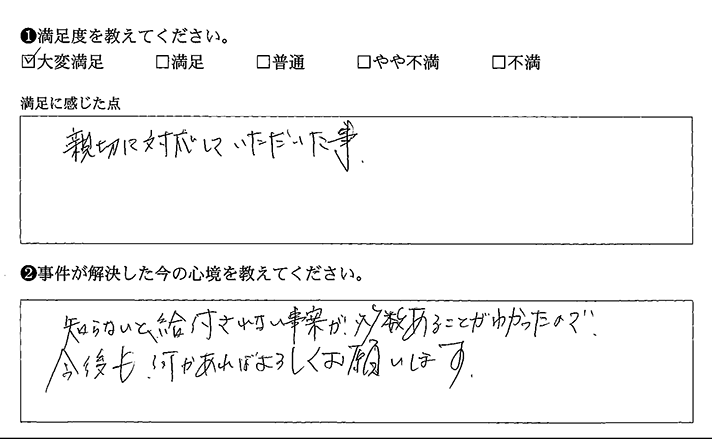 ❶満足度を教えてください。
☑大変満足 □満足 □普通 □やや不満 □不満
満足に感じた点
親切に対応していただいた事.
❷事件が解決した今の心境を教えてください。
知らないと、給付されない事案が、多数あることがわかったので、
今後も、何かあればよろしくお願いします.